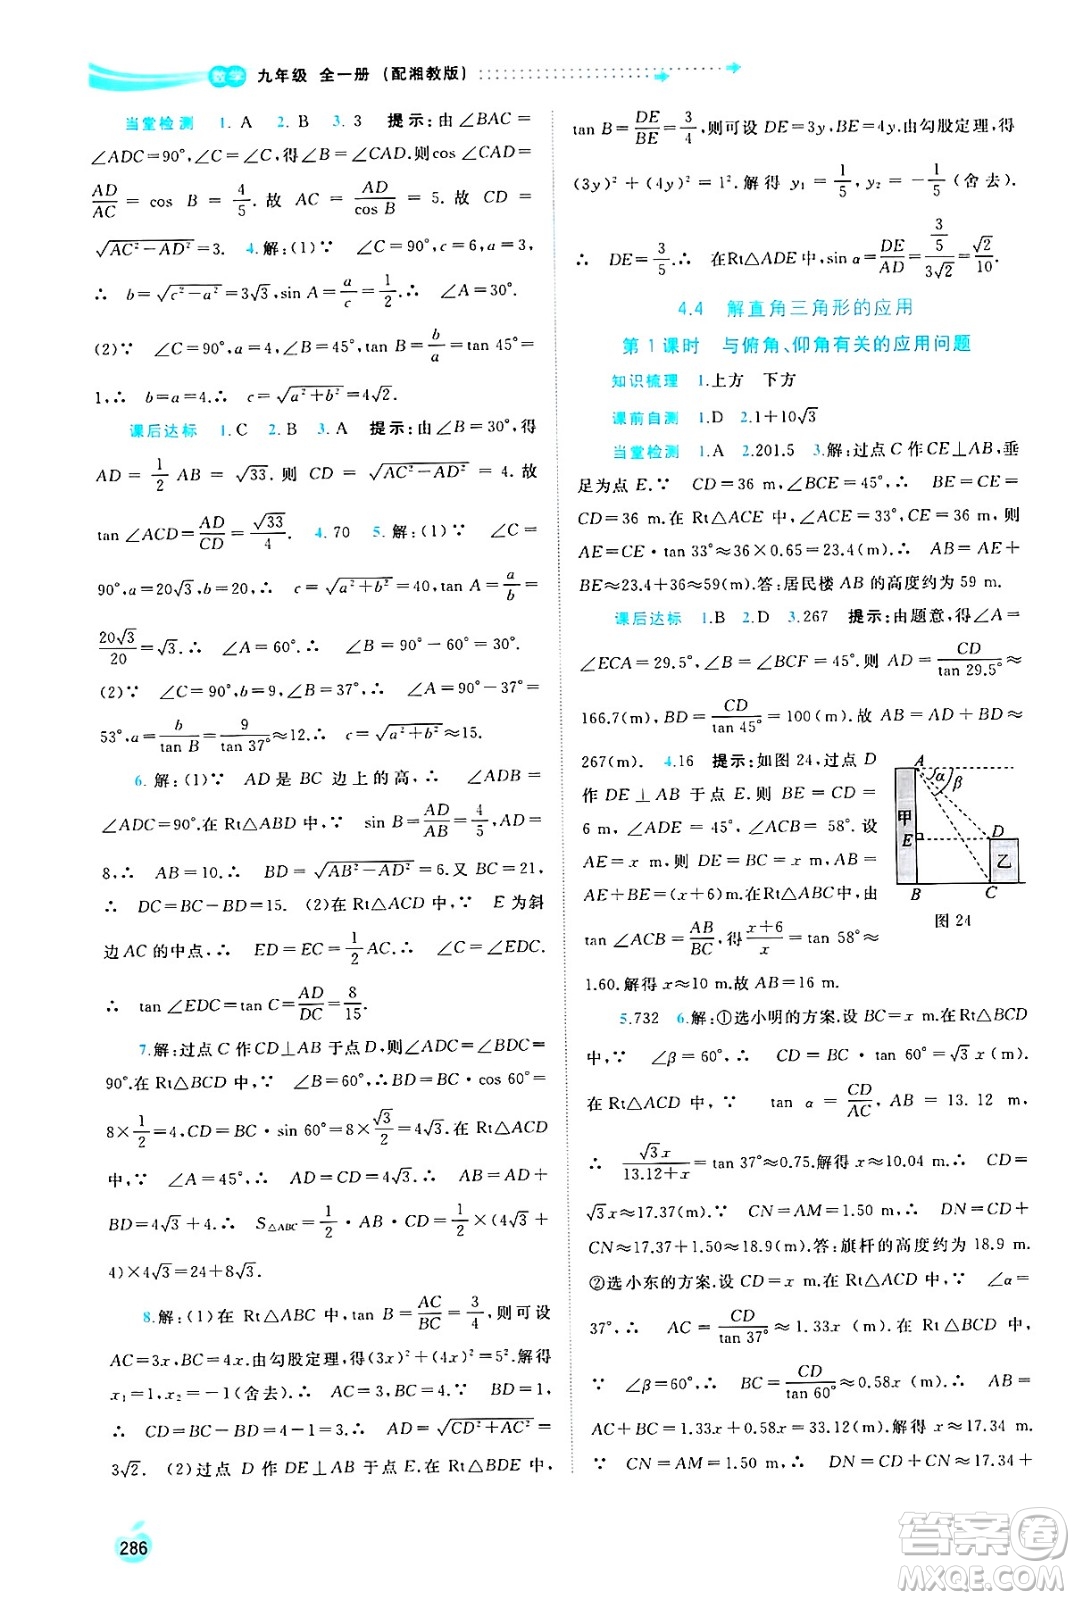 数学 九年级 全一册 (配湘教版)
当堂检测 1. A 2. B 3. 3 提示:由∠BAC=
∠ADC=90°,∠C=∠C,得∠B=∠CAD.则cos ∠CAD=
AD/AC = cos B = 4/5. 故 AC = AD/cos B = 5. 故 CD =
√(AC²-AD²)=3. 4.解:(1)∵ ∠C=90°,c=6,a=3,
∴ b=√(c²-a²)=3√3,sin A=a/c=1/2.∴ ∠A=30°.
(2)∵ ∠C=90°,a=4,∠B=45°,∴ tan B=b/a=
1,∴ b=a=4.∴ c=√(a²+b²)=4√2.
课后达标 1. C 2. B 3. A 提示:由∠B=30°,得
AD=1/2 AB=√33. 则 CD=√(AC²-AD²)=4. 故
tan ∠ACD=AD/CD=√33/4. 4. 70 5. 解:(1)∵ ∠C=
90°,a=20√3,b=20,∴ c=√(a²+b²)=40,tan A=a/b=
20√3/20=√3.∴ ∠A=60°.∴ ∠B=90°-∠A=30°.
(2)∵ ∠C=90°,b=9,∠B=37°,∴ ∠A=90°-∠B=
53°,a=b/tan B=9/tan 37°≈12.∴ c=√(a²+b²)≈15.
6. 解:(1)∵ AD是BC边上的高,∴ ∠ADB=
∠ADC=90°.在Rt△ABD中,∵ sin B=AD/AB=4/5,AD=
8,∴ AB=10.∴ BD=√(AB²-AD²)=6.又 BC=21,
∴ DC=BC-BD=15. (2)在Rt△ACD中,∵ E为斜
边AC的中点,∴ ED=EC=1/2AC.∴ ∠C=∠EDC.
∴ tan ∠EDC=tan C=AD/DC=8/15.
7.解:过点C作CD⊥AB于点D,则∠ADC=∠BDC=
90°.在Rt△BCD中,∵ ∠B=60°,∴ BD=BC·cos 60°=
8×1/2=4,CD=BC·sin 60°=8×√3/2=4√3.在Rt△ACD
中,∵ ∠A=45°,∴ AD=CD=4√3.∴ AB=AD+
BD=4√3+4.∴ S△ABC=1/2·AB·CD=1/2×(4√3+
4)×4√3=24+8√3.
8.解:(1)在Rt△ABC中,tan B=AC/BC=3/4,则可设
AC=3x,BC=4x.由勾股定理,得(3x)²+(4x)²=5².解得
x₁=1,x₂=-1(舍去).∴ AC=3,BC=4.∵ BD=1,
∴ CD=BC-BD=3.∴ AD=√(CD²+AC²)=
3√2. (2)过点D作DE⊥AB于点E.在Rt△BDE中,
tan B=DE/BE=3/4,则可设DE=3y,BE=4y.由勾股定理,得
(3y)²+(4y)²=1².解得 y₁=1/5,y₂=-1/5(舍去).
∴ DE=3/5.∴ 在Rt△ADE中,sin α=DE/AD=(3/5)/(3√2)=√2/10.
4.4 解直角三角形的应用
第1课时 与俯角、仰角有关的应用问题
知识梳理 1.上方 下方
课前自测 1.D 2.1+10√3
当堂检测 1.A 2.201.5 3.解:过点C作CE⊥AB,垂
足为点E.∵ CD=36 m,∠BCE=45°,∴ BE=CE=
CD=36 m.在Rt△ACE中,∠ACE=33°,CE=36 m,则
AE=CE·tan 33°≈36×0.65=23.4(m).∴ AB=AE+
BE≈23.4+36≈59(m).答:居民楼AB的高度约为59 m.
课后达标 1.B 2.D 3.267 提示:由题意,得∠A=
∠ECA=29.5°,∠B=∠BCF=45°.则AD=CD/tan 29.5°≈
166.7(m),BD=CD/tan 45°=100(m).故 AB=AD+BD≈
267(m). 4.16 提示:如图24,过点D
作DE⊥AB于点E.则BE=CD=
6 m,∠ADE=45°,∠ACB=58°.设
AE=x m,则DE=BC=AE=x m,AB=
AE+BE=(x+6)m.在Rt△ABC中,由
tan ∠ACB=AB/BC,得(x+6)/x=tan 58°≈
1.60.解得x≈10 m.故AB=16 m.
A
α
β
甲
E
D
乙
B
C
图24
5.732 6.解:①选小明的方案.设BC=x m.在Rt△BCD
中,∵ ∠β=60°,∴ CD=BC·tan 60°=√3x(m).
在Rt△ACD中,∵ tan α=CD/AC,AB=13.12 m,
∴ √3x/(13.12+x)=tan 37°≈0.75.解得x≈10.04 m.∴ CD=
√3x≈17.37(m).∵ CN=AM=1.50 m,∴ DN=CD+
CN≈17.37+1.50≈18.9(m).答:旗杆的高度约为18.9 m.
②选小东的方案.设CD=x m.在Rt△ACD中,∵ ∠α=
37°,∴ AC=CD/tan 37°≈1.33x(m).在Rt△BCD中,
∵ ∠β=60°,∴ BC=CD/tan 60°≈0.58x(m).∴ AB=
AC+BC=1.33x+0.58x=33.12(m).解得x≈17.34 m.
∵ CN=AM=1.50 m,∴ DN=CD+CN≈17.34+
286
答案卷
MXQE.COM